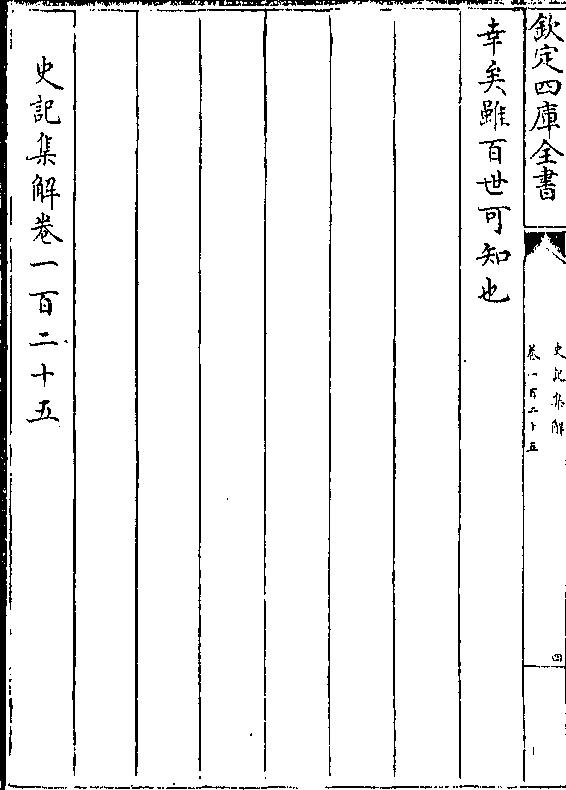 欽定四庫全書
史記集解
卷一百二十五
四
幸矣雖百世可知也
史記集解卷一百二十五